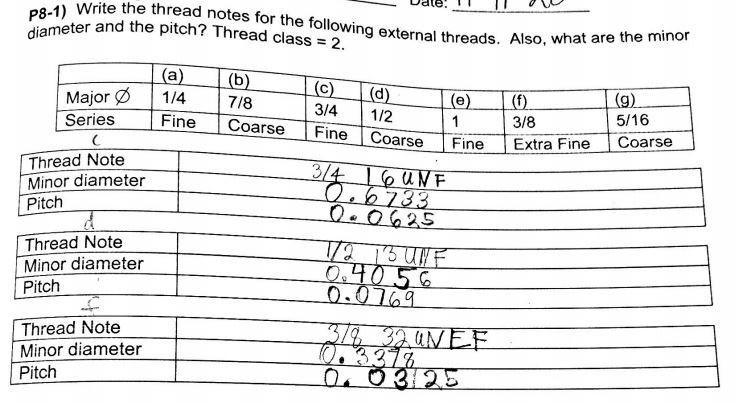 Date: 11 11 20
P8-1) Write the thread notes for the following external threads. Also, what are the minor
diameter and the pitch? Thread class = 2.
(a) (b) (c) (d) (e) (f) (g)
Major Ø 1/4 7/8 3/4 1/2 1 3/8 5/16
Series Fine Coarse Fine Coarse Fine Extra Fine Coarse
c
Thread Note 3/4 16 UNF
Minor diameter 0.6733
Pitch 0.0625
d
Thread Note 1/2 13 UNF
Minor diameter 0.4056
Pitch 0.0769
f
Thread Note 3/8 32 UNEF
Minor diameter 0.3378
Pitch 0.03125